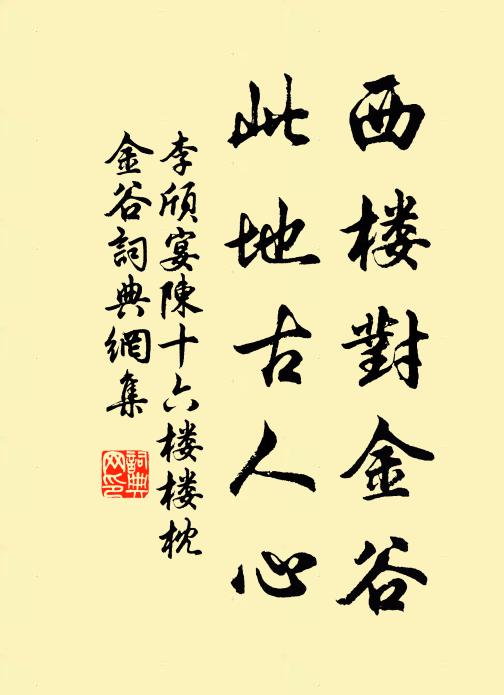 西楼對金谷
此地古人心
李頎宴陳十六楼楼枕
金谷詞典網集
詞典
网印